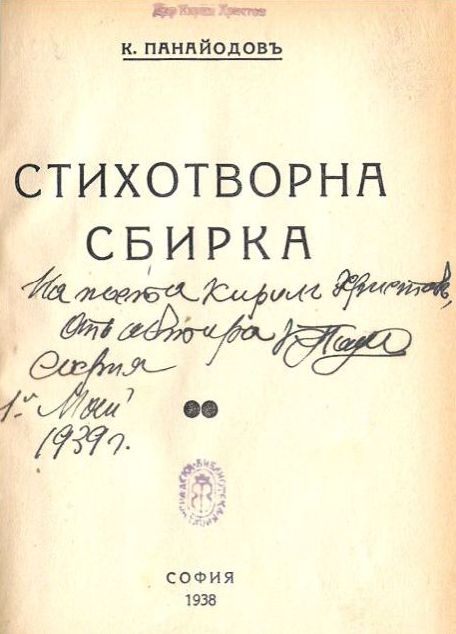 Дар Кирил Христов
К. ПАНАЙОДОВЪ
СТИХОТВОРНА
СБИРКА
На поета Кирилъ Христовъ,
отъ автора
София
1й Май
1939 г.
СОФИЯ
1938